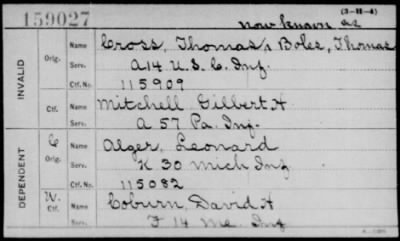 159027
(3-11-4)
now known as
INVALID
Orig.
Name Cross, Thomas, Boles, Thomas
Serv. A 14 U.S. C. Inf.
Ctf. No. 115909
Ctf.
Name Mitchell Gilbert H
Serv. A 57 Pa. Inf.
DEPENDENT
C
Orig.
Name Alger, Leonard
Serv. K 30 Mich Inf
Ctf. No. 115082
W.
Ctf.
Name Coburn, David H
Serv. F 14 Me. Inf